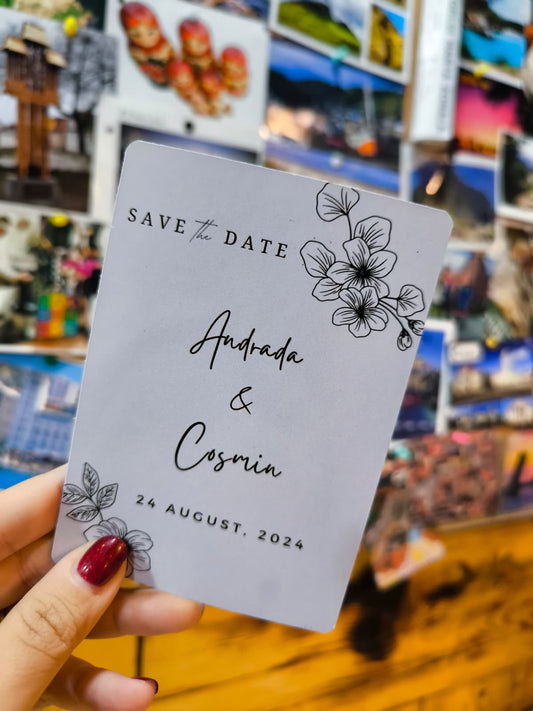 SAVE the DATE
Andrada
&
Cosmin
24 AUGUST, 2024